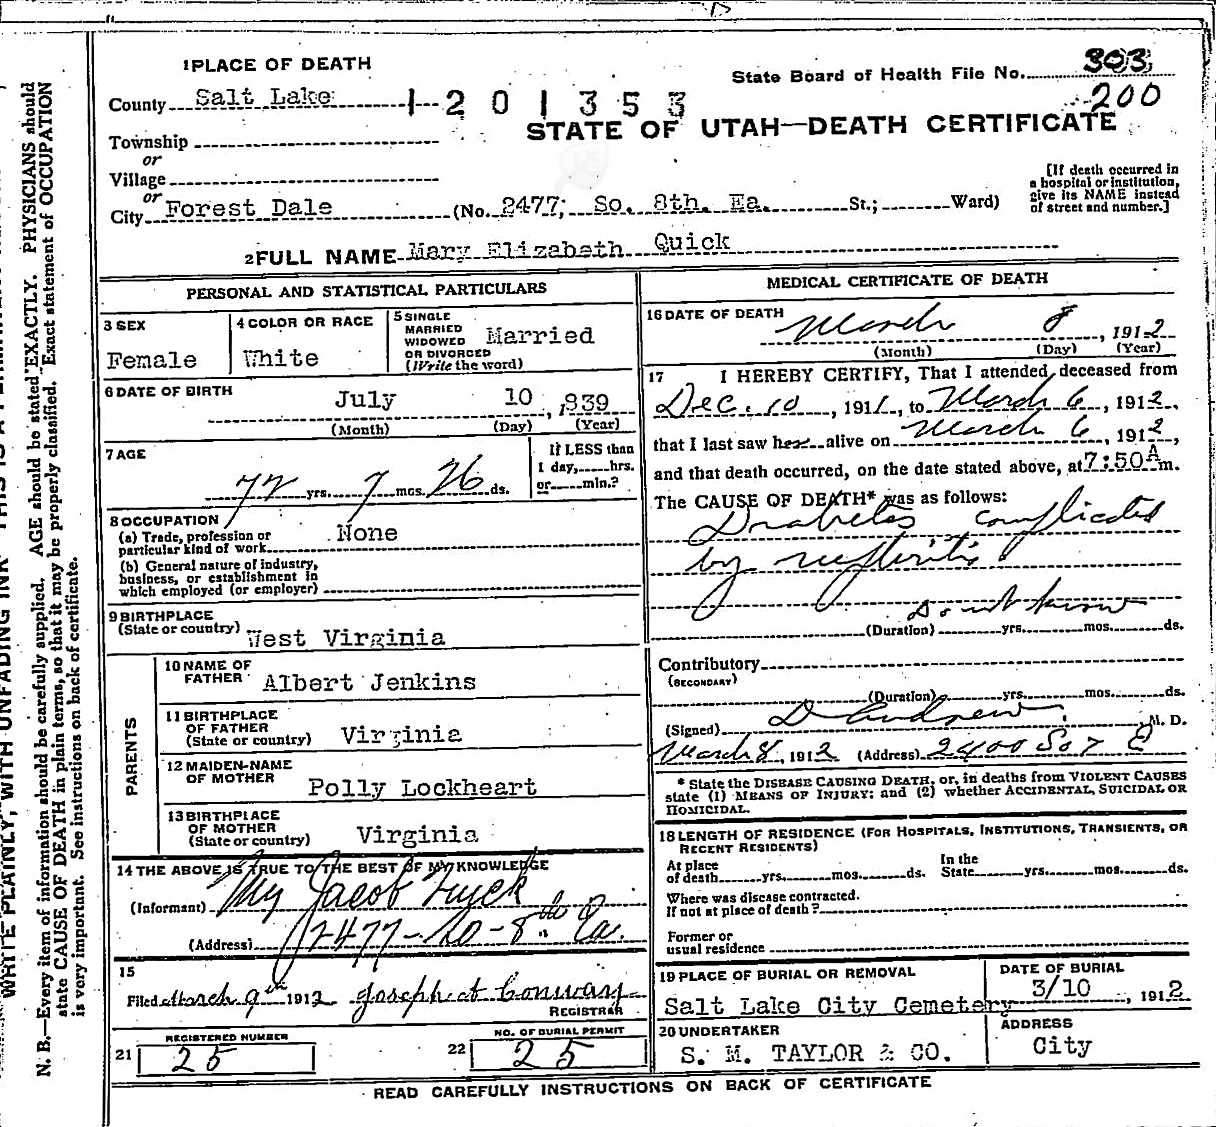 1 PLACE OF DEATH
State Board of Health File No. 303
200
County Salt Lake
1201353
STATE OF UTAH—DEATH CERTIFICATE
Township
or
Village
or
City Forest Dale (No. 2477; So. 8th. Ea. St.; Ward)
[If death occurred in
a hospital or institution,
give its NAME instead
of street and number.]
2 FULL NAME Mary Elizabeth Quick
PERSONAL AND STATISTICAL PARTICULARS
3 SEX
Female
4 COLOR OR RACE
White
5 SINGLE
MARRIED
WIDOWED
OR DIVORCED
(Write the word)
Married
6 DATE OF BIRTH
July 10, 1839
(Month) (Day) (Year)
7 AGE
72 yrs. 7 mos. 26 ds.
If LESS than
1 day, hrs.
or min.?
8 OCCUPATION
(a) Trade, profession or
particular kind of work None
(b) General nature of industry,
business, or establishment in
which employed (or employer)
9 BIRTHPLACE
(State or country) West Virginia
PARENTS
10 NAME OF
FATHER Albert Jenkins
11 BIRTHPLACE
OF FATHER
(State or country) Virginia
12 MAIDEN-NAME
OF MOTHER Polly Lockheart
13 BIRTHPLACE
OF MOTHER
(State or country) Virginia
14 THE ABOVE IS TRUE TO THE BEST OF MY KNOWLEDGE
(Informant) Jacob
(Address) 2477-So-8th Ea.
15
Filed March 9th 1912 Joseph Conway
REGISTRAR
REGISTERED NUMBER
21 25
NO. OF BURIAL PERMIT
22 25
MEDICAL CERTIFICATE OF DEATH
16 DATE OF DEATH
March 8, 1912
(Month) (Day) (Year)
17 I HEREBY CERTIFY, That I attended deceased from
Dec. 10, 1911, to March 6, 1912,
that I last saw her alive on March 6, 1912,
and that death occurred, on the date stated above, at 7:50 A m.
The CAUSE OF DEATH* was as follows:
Diabetes complicated
by nephritis
Dont know
(Duration) yrs. mos. ds.
Contributory
(SECONDARY)
(Duration) yrs. mos. ds.
(Signed) M. D.
March 8, 1912 (Address) 2400 So 7 E
* State the DISEASE CAUSING DEATH, or, in deaths from VIOLENT CAUSES
state (1) MEANS OF INJURY; and (2) whether ACCIDENTAL, SUICIDAL OR
HOMICIDAL.
18 LENGTH OF RESIDENCE (FOR HOSPITALS, INSTITUTIONS, TRANSIENTS, OR
RECENT RESIDENTS)
At place
of death yrs. mos. ds.
In the
State yrs. mos. ds.
Where was disease contracted.
If not at place of death?
Former or
usual residence
19 PLACE OF BURIAL OR REMOVAL
Salt Lake City Cemetery
DATE OF BURIAL
3/10, 1912
20 UNDERTAKER
S. M. TAYLOR & CO.
ADDRESS
City
READ CAREFULLY INSTRUCTIONS ON BACK OF CERTIFICATE
WRITE PLAINLY, WITH UNFADING INK THIS IS A
N. B.—Every item of information should be carefully supplied. AGE should be stated EXACTLY. PHYSICIANS should
state CAUSE OF DEATH in plain terms, so that it may be properly classified. Exact statement of OCCUPATION
is very important. See instructions on back of certificate.